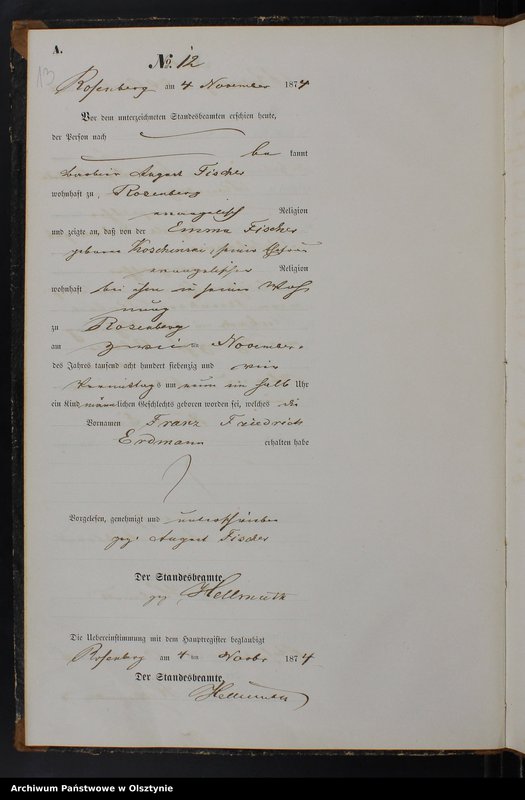 A.
13
No. 12
Rosenberg am 4 November 1874
Vor dem unterzeichneten Standesbeamten erschien heute,
der Person nach
be kannt
August Fischer
wohnhaft zu Rosenberg
evangelisch Religion
und zeigte an, daß von der Emma Fischer
geborne Koschinski, seiner Ehefrau
evangelischer Religion
wohnhaft bei ihm in seiner Woh
nung
zu Rosenberg
am zweiten November
des Jahres tausend acht hundert siebenzig und vier
Vormittags um neun ein halb Uhr
ein Kind männlichen Geschlechts geboren worden sei, welches die
Vornamen Franz Friedrich
Erdmann erhalten habe
Vorgelesen, genehmigt und unterschrieben
gez. August Fischer
Der Standesbeamte.
gez Hellmuth
Die Uebereinstimmung mit dem Hauptregister beglaubigt
Rosenberg am 4 ten Novbr 1874
Der Standesbeamte.
Hellmuth
Archiwum Państwowe w Olsztynie